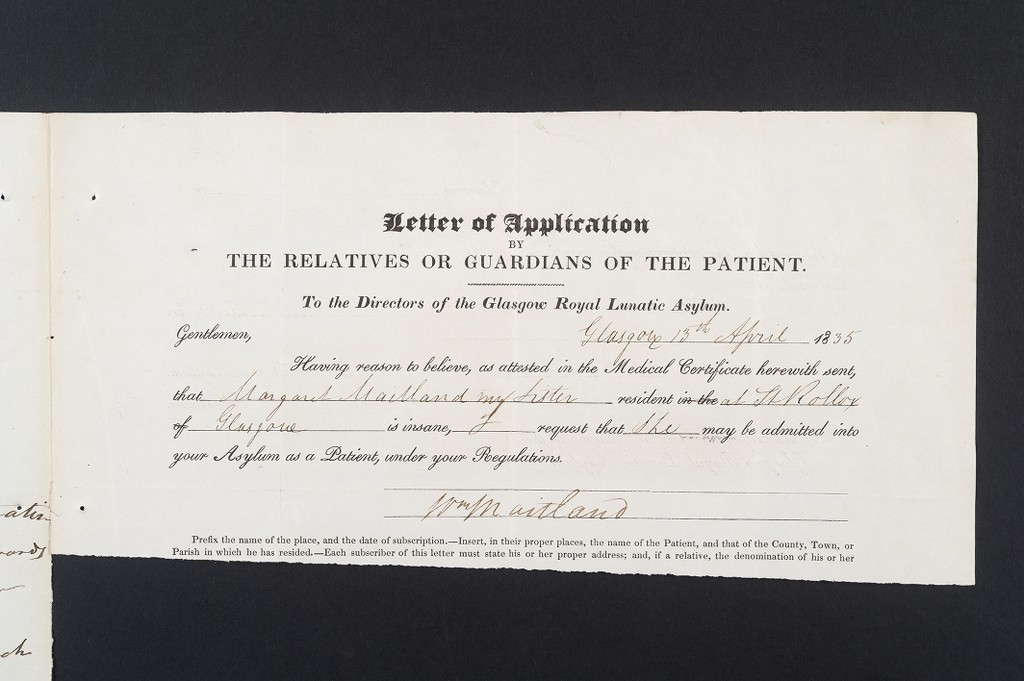 Letter of Application
BY
THE RELATIVES OR GUARDIANS OF THE PATIENT.
To the Directors of the Glasgow Royal Lunatic Asylum.
Gentlemen,
Glasgow 13th April 1835
Having reason to believe, as attested in the Medical Certificate herewith sent,
that Margaret Maitland my Sister resident in the at St Rollox
of Glasgow is insane, I request that She may be admitted into
your Asylum as a Patient, under your Regulations.
Wm Maitland
Prefix the name of the place, and the date of subscription.—Insert, in their proper places, the name of the Patient, and that of the County, Town, or
Parish in which he has resided.—Each subscriber of this letter must state his or her proper address; and, if a relative, the denomination of his or her